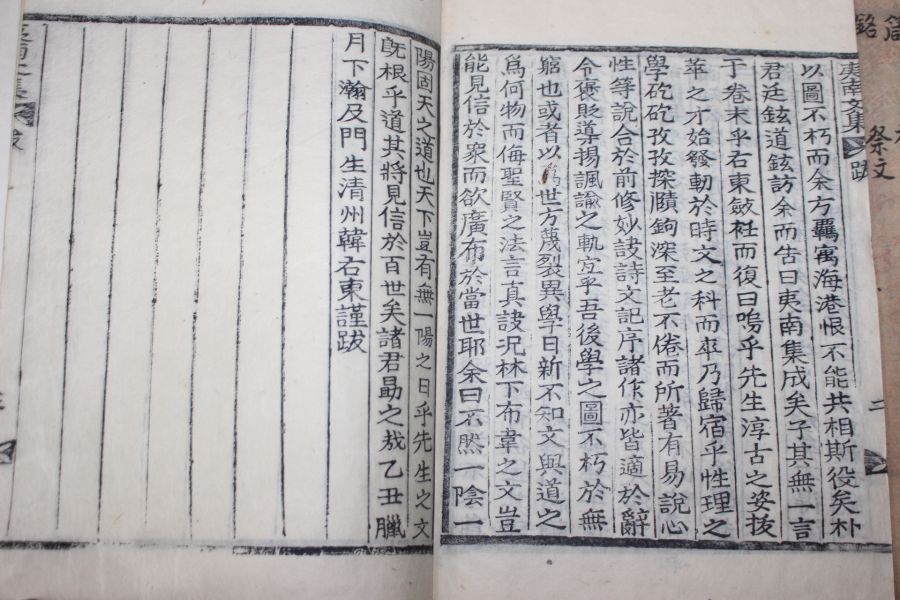 夷南文集 跋 二
以圖不朽而余方羈寓海港恨不能共相斯役矣朴
君廷鉉道鉉訪余而告曰夷南集成矣子其無一言
于卷末乎右東斂衽而復曰嗚乎先生淳古之姿拔
萃之才始發軔於時文之科而卒乃歸宿乎性理之
學矻矻孜孜探賾鉤深至老不倦而所著有易說心
性等說合於前修妙訣詩文記序諸作亦皆適於辭
令褒貶導揚諷諭之軌宜乎吾後學之圖不朽於無
窮也或者以爲世方蔑裂異學日新不知文與道之
爲何物而侮聖賢之法言真訣况林下布韋之文豈
能見信於衆而欲廣布於當世耶余曰不然一陰一
陽固天之道也天下豈有無一陽之日乎先生之文
旣根乎道其將見信於百世矣諸君勗之㢤乙丑臘
月下瀚及門生清州韓右東謹跋
祭文